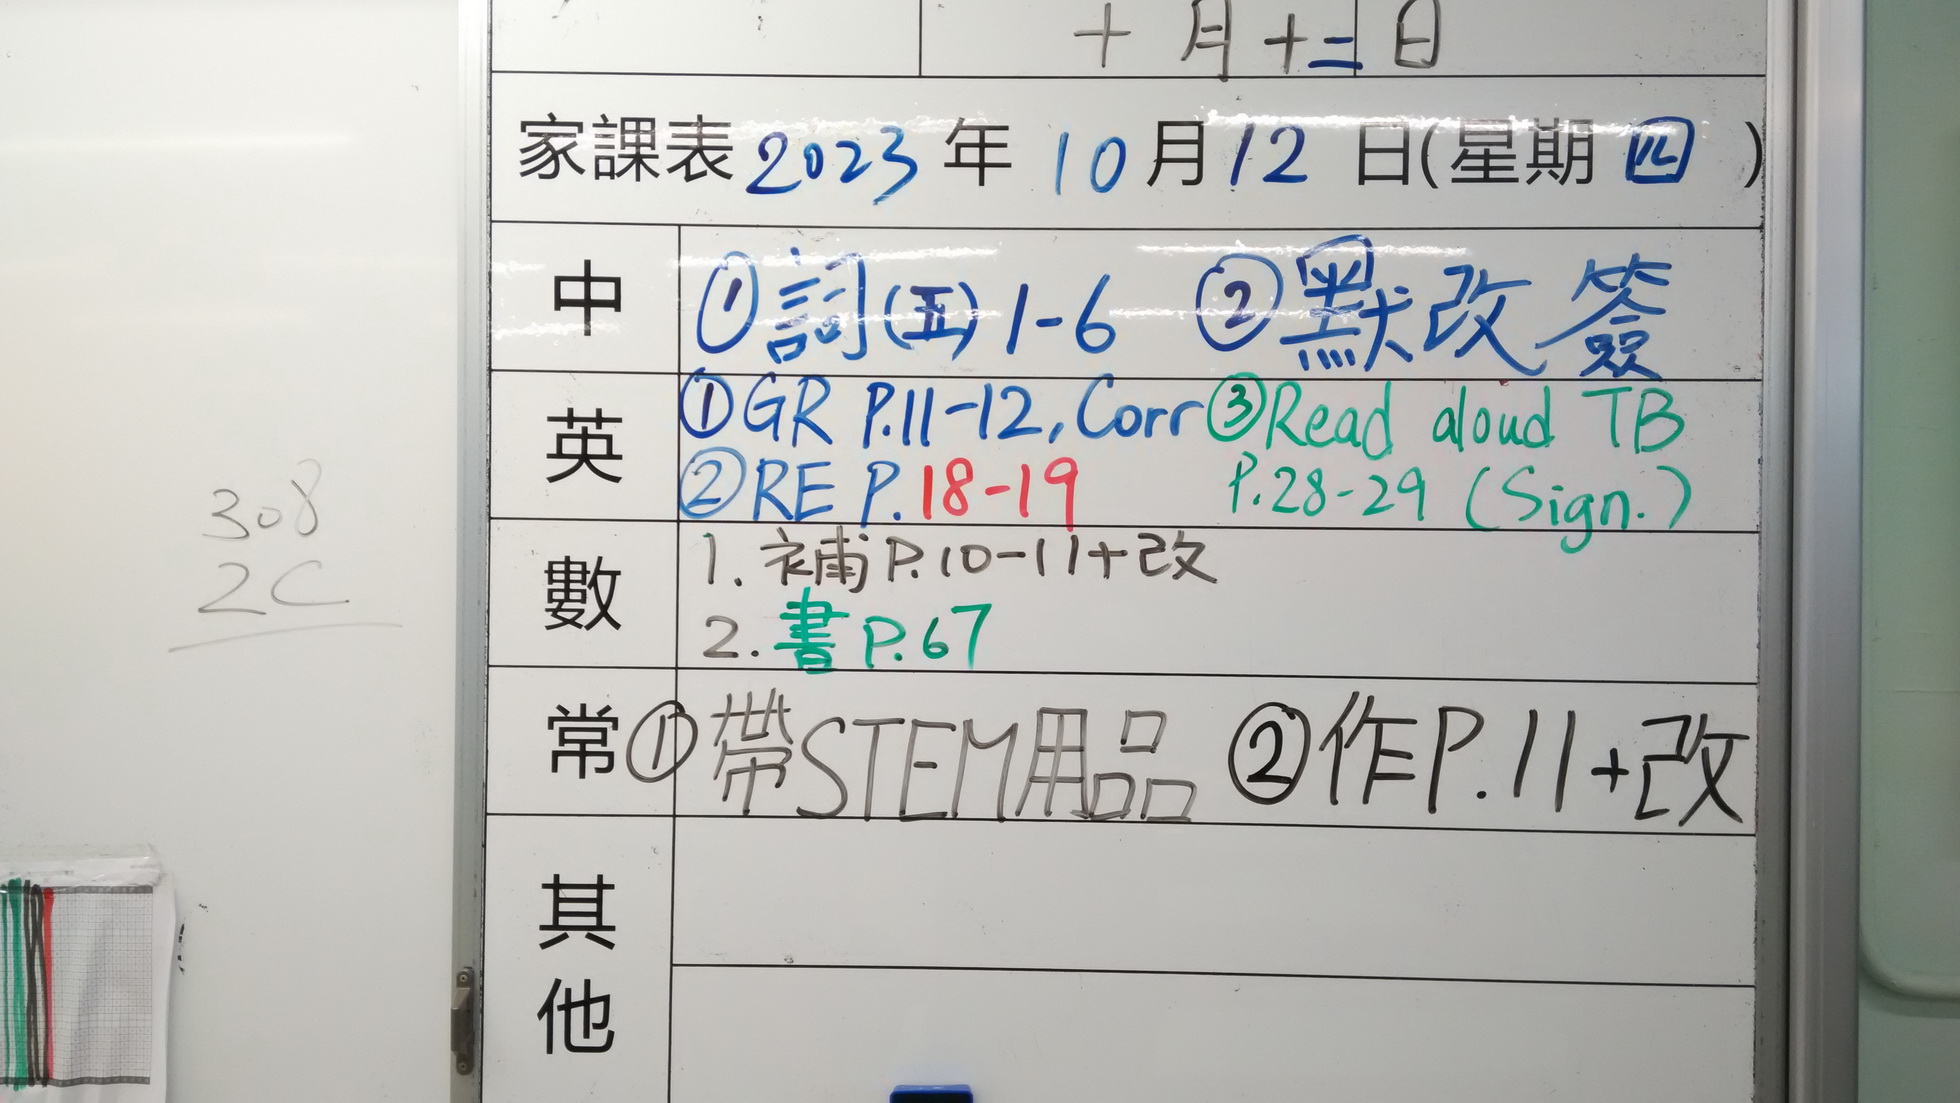 十月十二日
家課表 2023 年 10 月 12 日(星期 四 )
中 ①詞(五) 1-6 ②默改簽
英 ①GR P.11-12, Corr ③Read aloud TB
②RE P.18-19 P.28-29 (Sign.)
數 1. 補P.10-11+改
2. 書P.67
常 ①帶STEM用品 ②作P.11+改
其他
308
2C